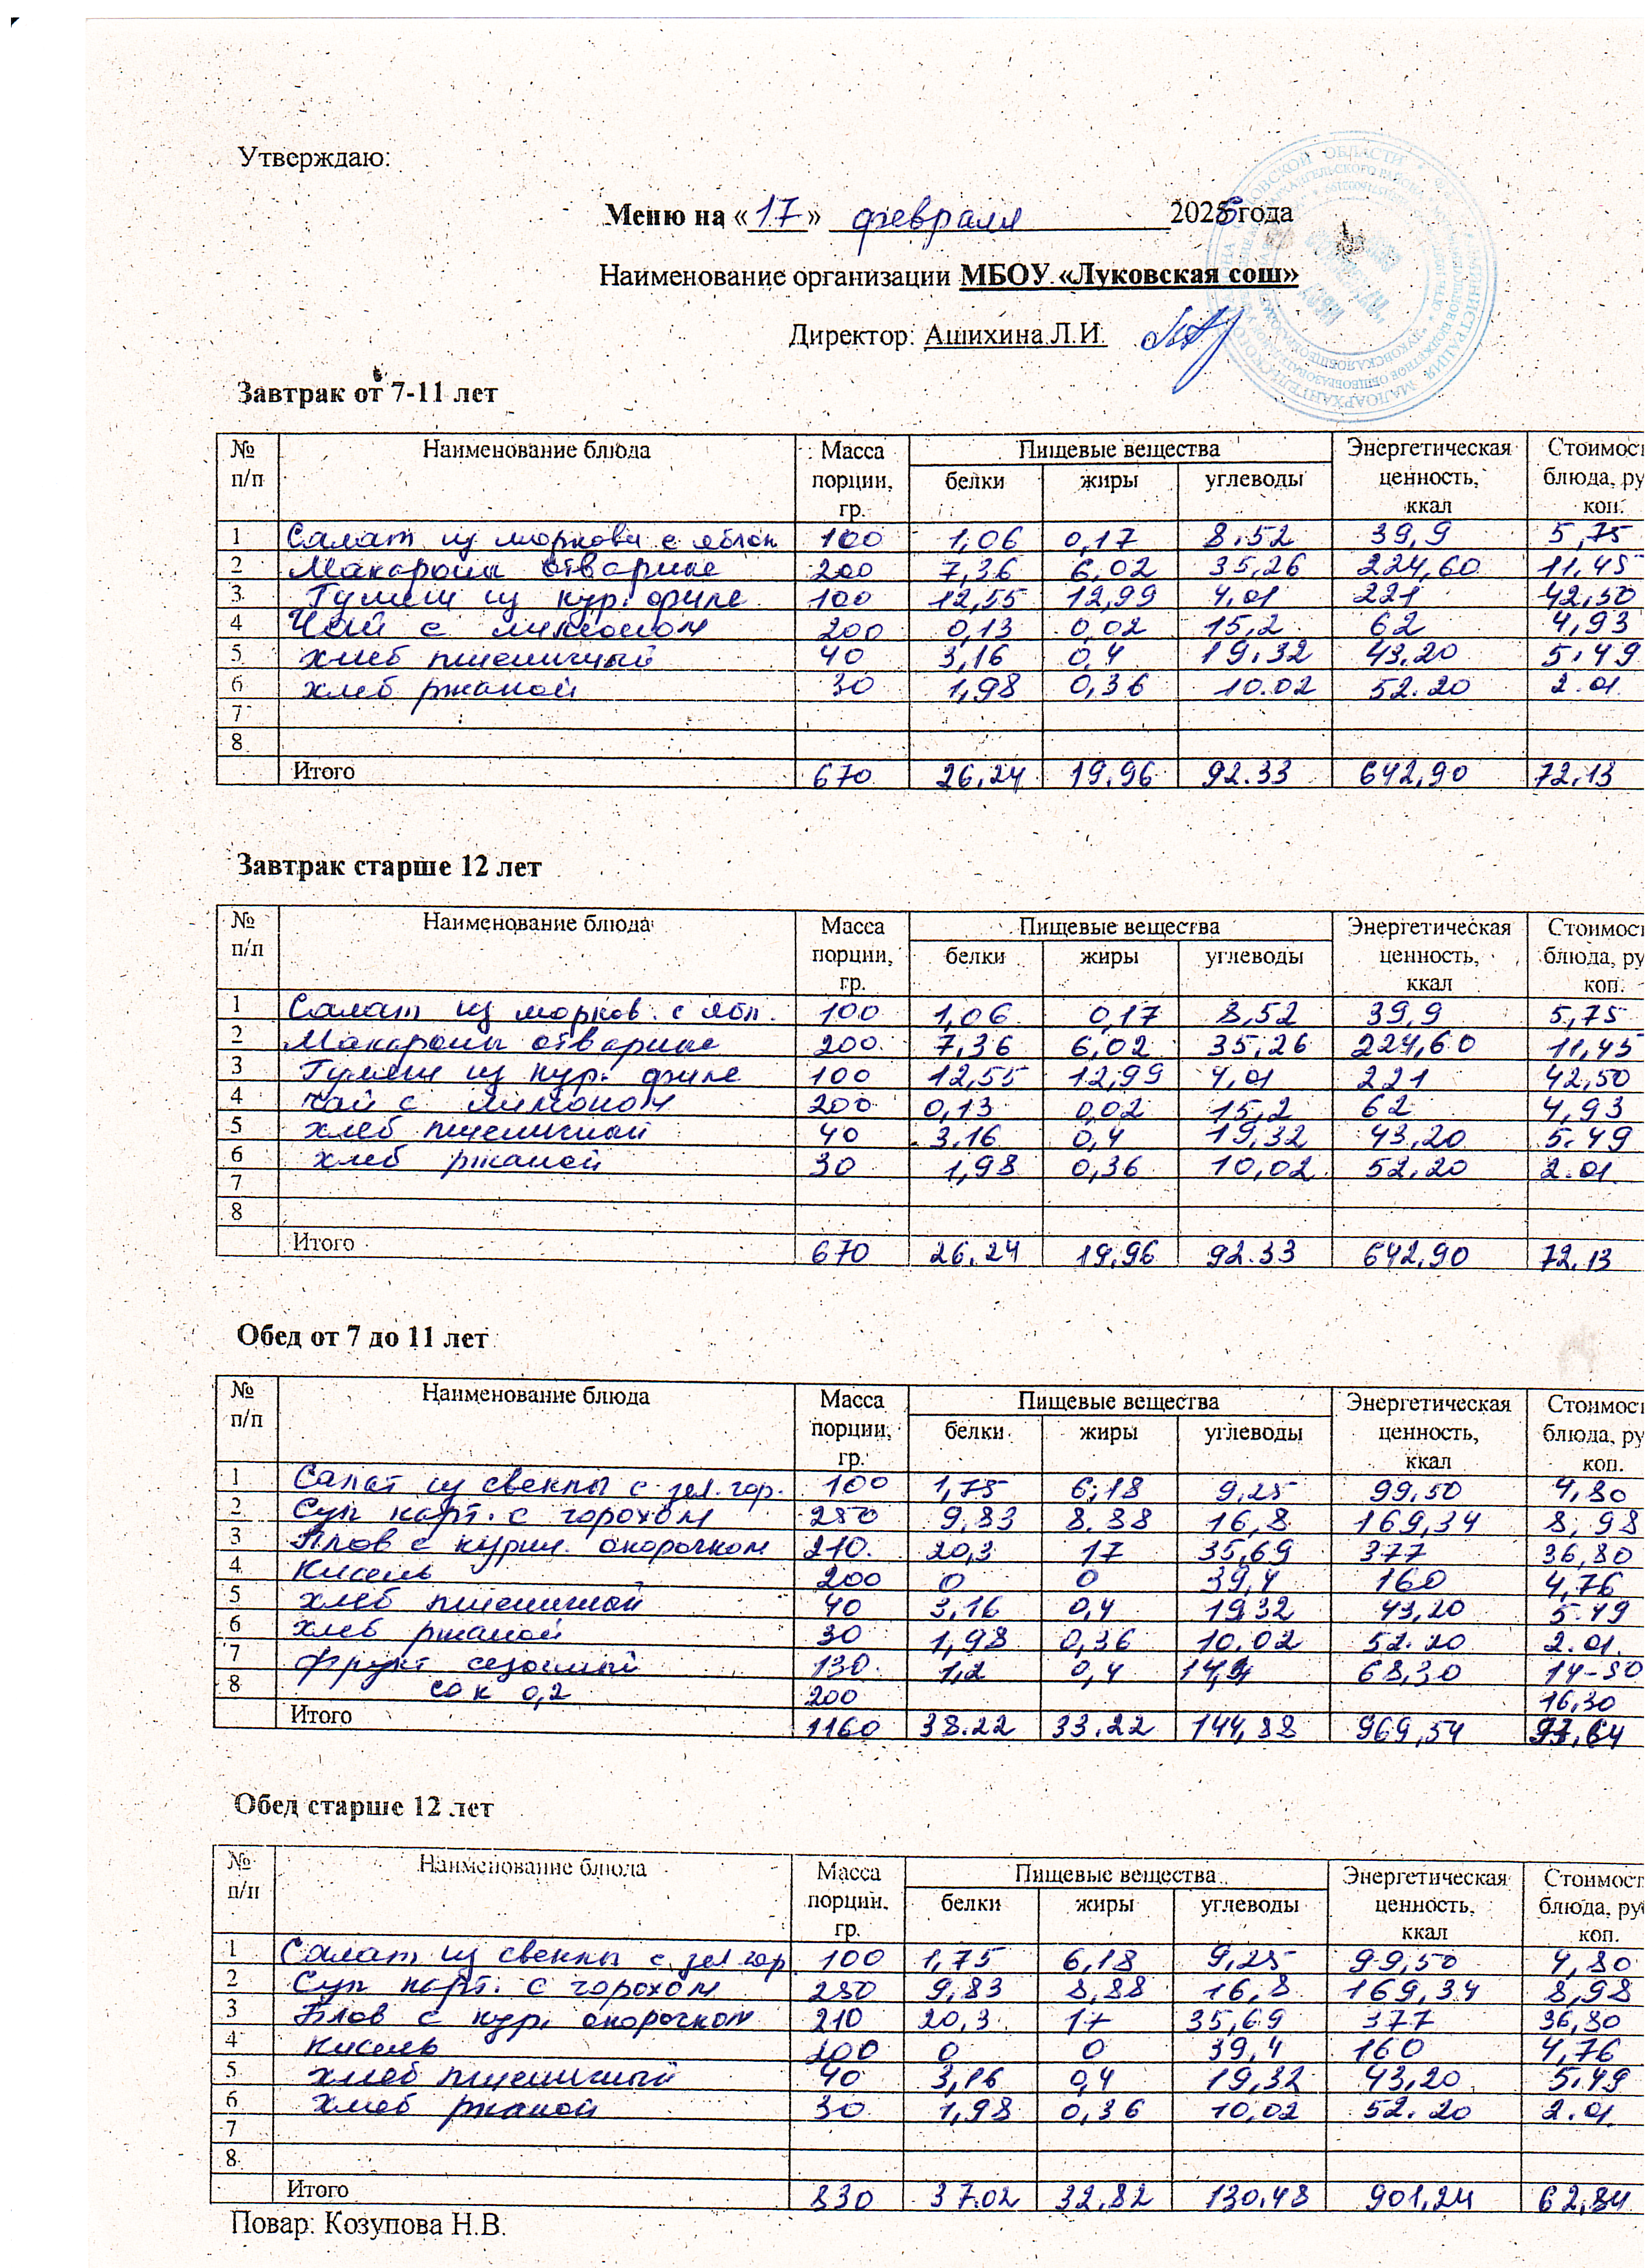 Утверждаю:
Меню на «17» февраля 2026 года
Наименование организации МБОУ «Луковская сош»
Директор: Ашихина Л.И.
Завтрак от 7-11 лет
№ п/п Наименование блюда Масса порции, гр. Пищевые вещества Энергетическая ценность, ккал Стоимос блюда, ру коп.
белки жиры углеводы
1 Салат из моркови с яблок 100 1,06 0,17 8,52 39,9 5,75
2 Макароны отварные 200 7,36 6,02 35,26 224,60 11,45
3 Гуляш из кур. филе 100 12,55 12,99 4,01 221 42,50
4 Чай с лимоном 200 0,13 0,02 15,2 62 4,93
5 хлеб пшеничный 40 3,16 0,4 19,32 43,20 5.49
6 хлеб ржаной 30 1,98 0,36 10.02 52.20 2.01
7
8
Итого 670 26,24 19,96 92.33 642,90 72,13
Завтрак старше 12 лет
№ п/п Наименование блюда Масса порции, гр. Пищевые вещества Энергетическая ценность, ккал Стоимос блюда, ру коп.
белки жиры углеводы
1 Салат из морков. с ябл. 100 1,06 0,17 8,52 39,9 5,75
2 Макароны отварные 200 7,36 6,02 35,26 224,60 11,45
3 Гуляш из кур. филе 100 12,55 12,99 4,01 221 42,50
4 чай с лимоном 200 0,13 0,02 15,2 62 4,93
5 хлеб пшеничный 40 3,16 0,4 19,32 43,20 5.49
6 хлеб ржаной 30 1,98 0,36 10,02 52,20 2.01
7
8
Итого 670 26,24 19,96 92.33 642,90 72.13
Обед от 7 до 11 лет
№ п/п Наименование блюда Масса порции, гр. Пищевые вещества Энергетическая ценность, ккал Стоимос блюда, ру коп.
белки жиры углеводы
1 Салат из свеклы с зел. гор. 100 1,75 6,18 9,25 99,50 4,80
2 Суп карт. с горохом 250 9,83 8.88 16,8 169,34 8,98
3 Плов с курин. окорочком 210. 20,3 17 35,69 377 36,80
4 Кисель 200 0 0 39,4 160 4,76
5 хлеб пшеничный 40 3,16 0,4 19,32 43,20 5.49
6 хлеб ржаной 30 1,98 0,36 10.02 52.20 2.01.
7 фрукт сезонный 130. 1,2 0,4 14,4 68,30 14-50
8 сок 0,2 200 16,30
Итого 1160 38.22 33.22 144,88 969,54 93,64
Обед старше 12 лет
№ п/п Наименование блюда Масса порции, гр. Пищевые вещества Энергетическая ценность, ккал Стоимост блюда, ру коп.
белки жиры углеводы
1 Салат из свеклы с зел гор 100 1,75 6,18 9,25 99,50 4,80
2 Суп карт. с горохом 250 9,83 8,88 16,8 169,34 8,98
3 Плов с кур. окорочком 210 20,3 17 35,69 377 36,80
4 кисель 200 0 0 39,4 160 4,76
5 хлеб пшеничный 40 3,16 0,4 19,32 43,20 5.49
6 хлеб ржаной 30 1,98 0,36 10,02 52.20 2.01
7
8
Итого 830 37.02 32,82 130,48 901,24 62,84
Повар: Козупова Н.В.